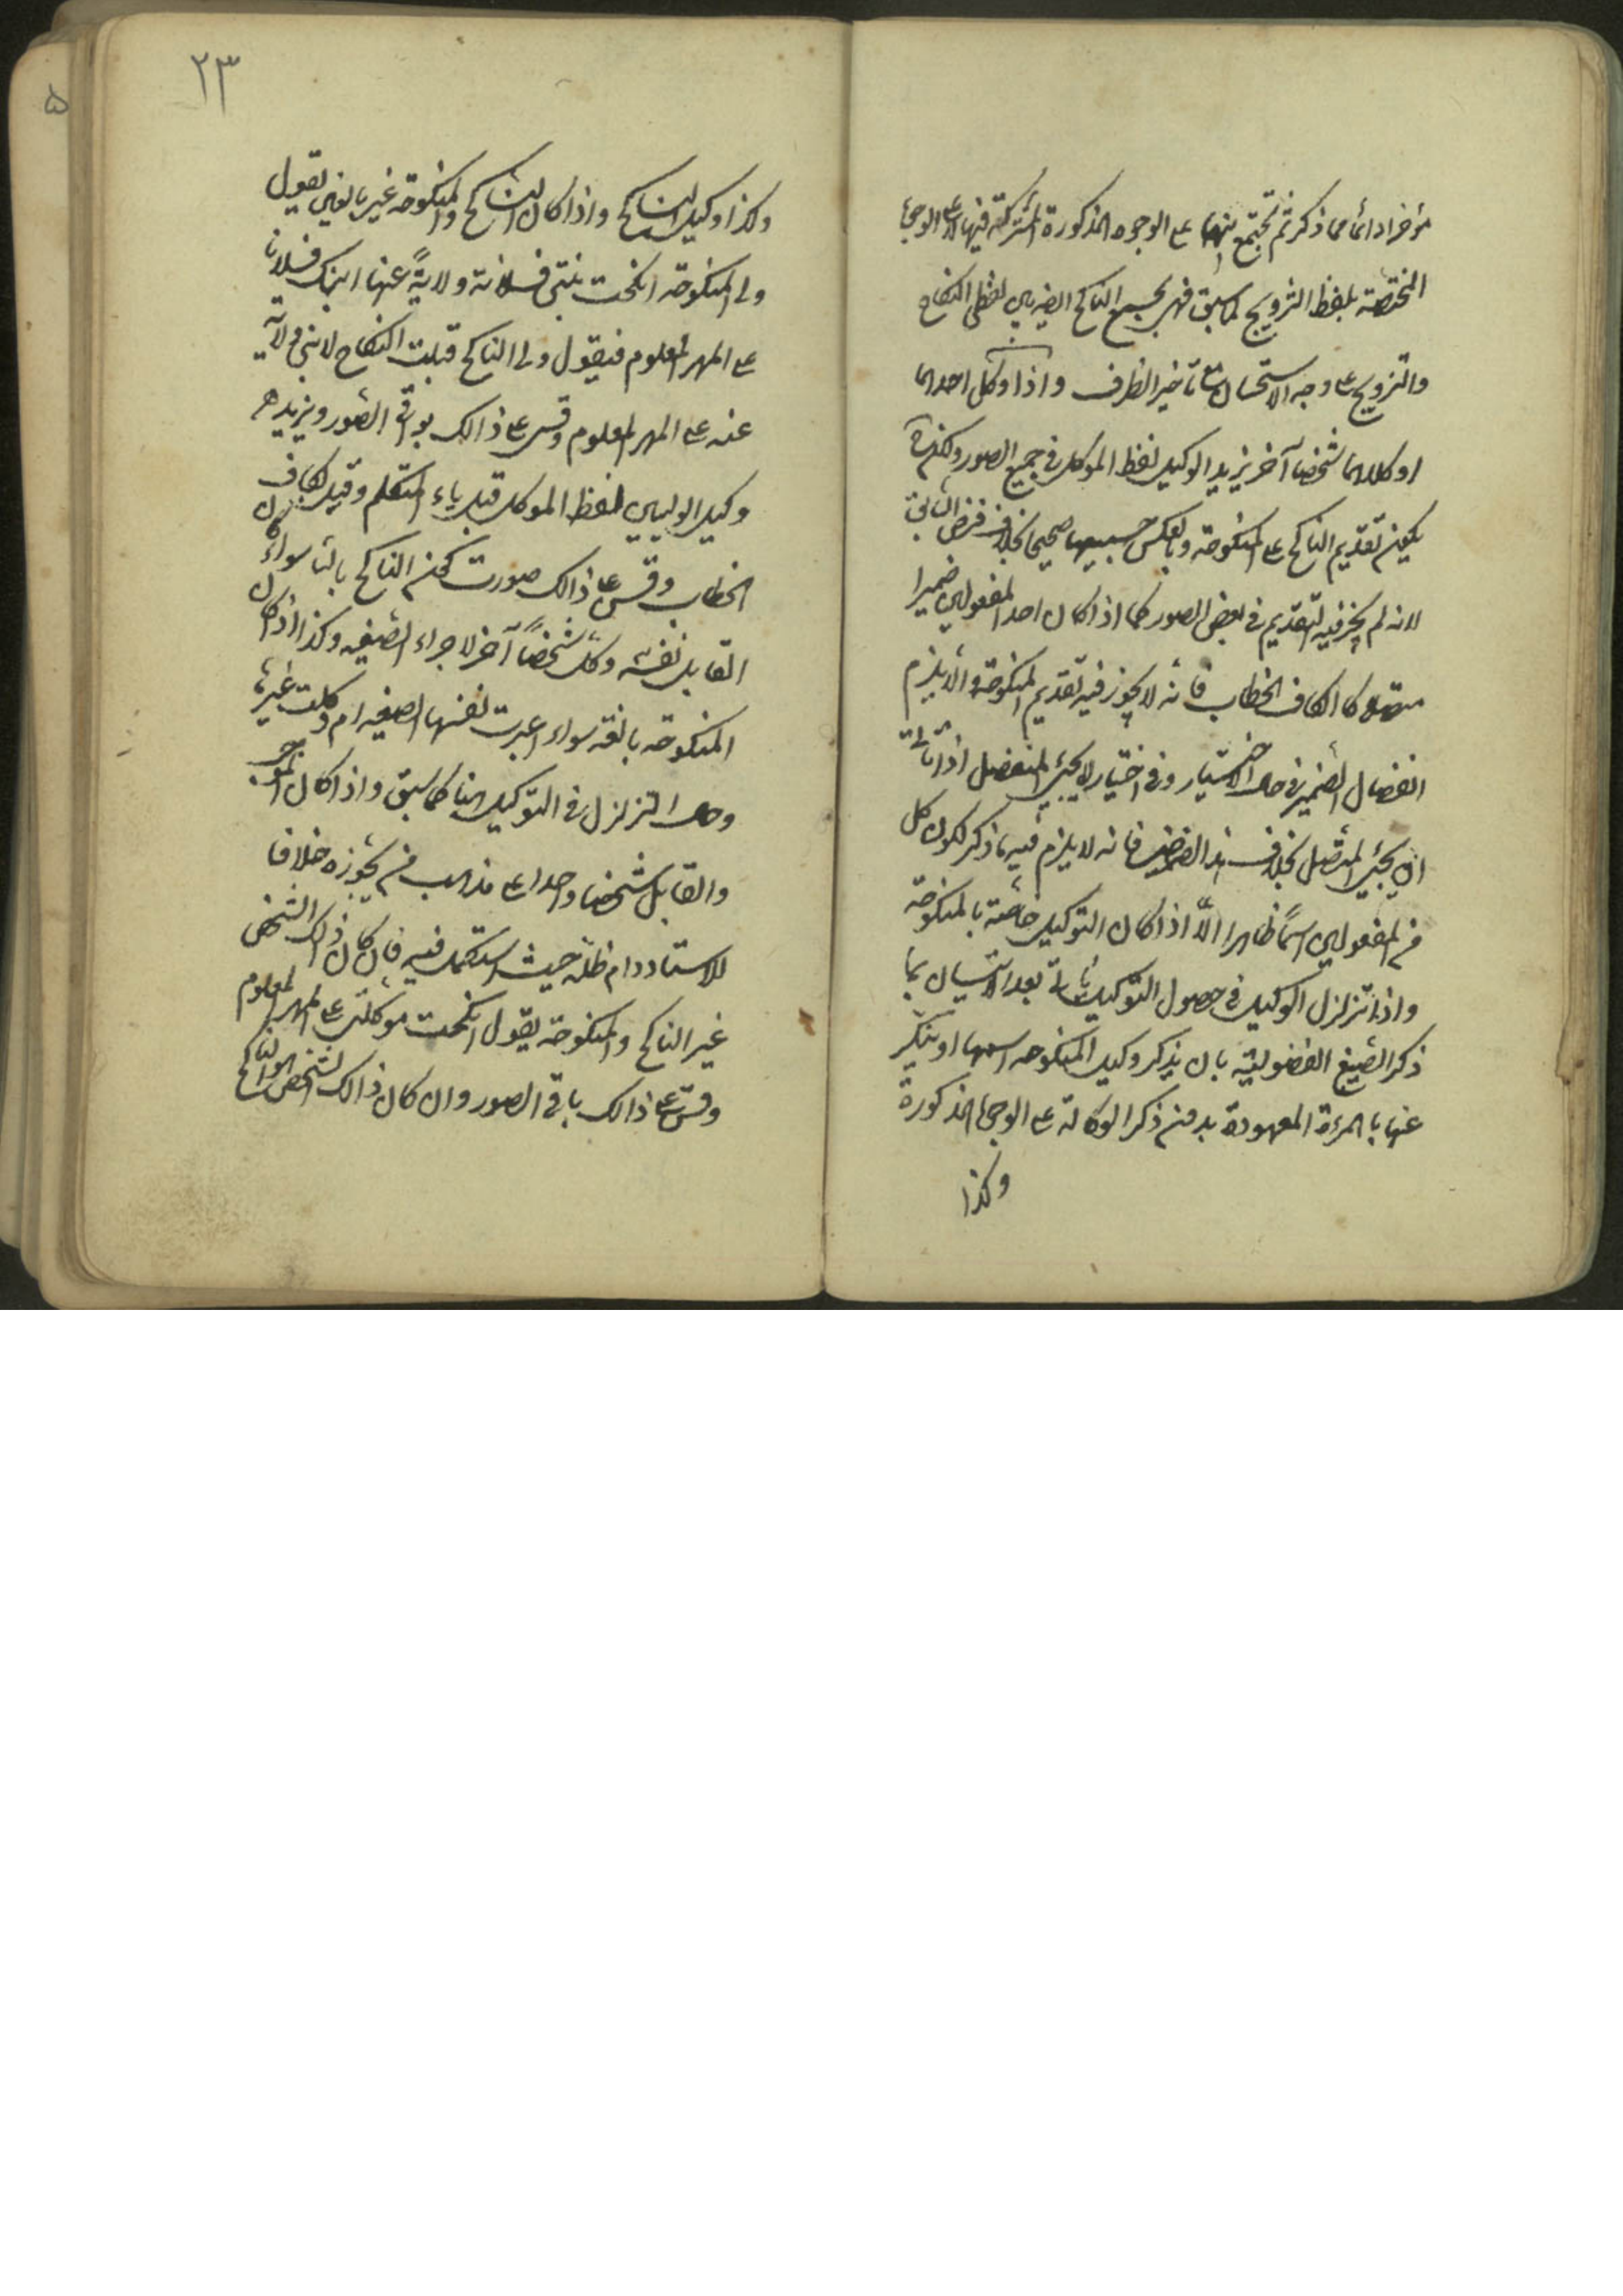 مؤخرا دائما مما ذكر ثم تجتمع بينهما على الوجوه المذكورة المشتركة فيها لا على الوجوه
المختصة بلفظ التزويج كما سبق فهى بجميع الناكح ايضا بين لفظى النكاح
والتزويج على وجه الاستحسان مع تأخير الظرف واذا وكل احدهما
او كلاهما شخصا آخر يزيد الوكيل لفظ الموكل فى جميع الصور ولكن
يكون تقديم الناكح على المنكوحة وبالعكس صحيحا بخلاف فرض السابق
لانه لم يجز فيه التقديم فى بعض الصور كما اذا كان احد المفعولين ضميرا
متصلا كالكاف الخطاب فانه لا يجوز فيه تقديم المنكوحة والا يلزم
انفصال الضمير فى حال الاختيار وفى اختيار لا يجئ المنفصل اذا تأتى
ان يجئ المتصل بخلاف هذا الفرض فانه لا يلزم فيه ما ذكر لكون كل
من المفعولين اسما ظاهرا الا اذا كان التوكيل خاصة بالمنكوحة
واذا تزلزل الوكيل فى حصول التوكيل بعد الاتيان بما
ذكر الصيغ الفضولية بان يذكر وكيل المنكوحة اسمها او يذكر
عنها بالمرءة المعهودة بدون ذكر الوكالة على الوجوه المذكورة
وكذا
٢٣
۵
وكذا وكيل الناكح واذا كان الناكح والمنكوحة غير بالغين يقول
ولى المنكوحة انكحت بنتى فلانة ولاية عنها ابنك فلانا
على المهر المعلوم فيقول ولى الناكح قبلت النكاح لابنى ولاية
عنه على المهر المعلوم وقس على ذالك بواقى الصور ويزيد
وكيل الوليين لفظ الموكل قبل ياء المتكلم وقبل كاف
الخطاب وقس على ذالك صورت كون الناكح بالغا سواء كان
القابل نفسه او وكل شخصا آخر لاجراء الصيغه وكذا اذا كان
المنكوحة بالغة سواء اجرت نفسها الصيغه ام وكلت غيرها
وحال التزلزل فى التوكيل هنا كما سبق واذا كان الموجب
والقابل شخصا واحدا على مذهب من يجوزه خلافا
للاستاد دام ظله حيث استشكل فيه فان كان ذلك الشخص
غير الناكح والمنكوحة يقول انكحت موكلتى على المهر المعلوم
وقس على ذالك باقى الصور وان كان ذالك الشخص هو الناكح